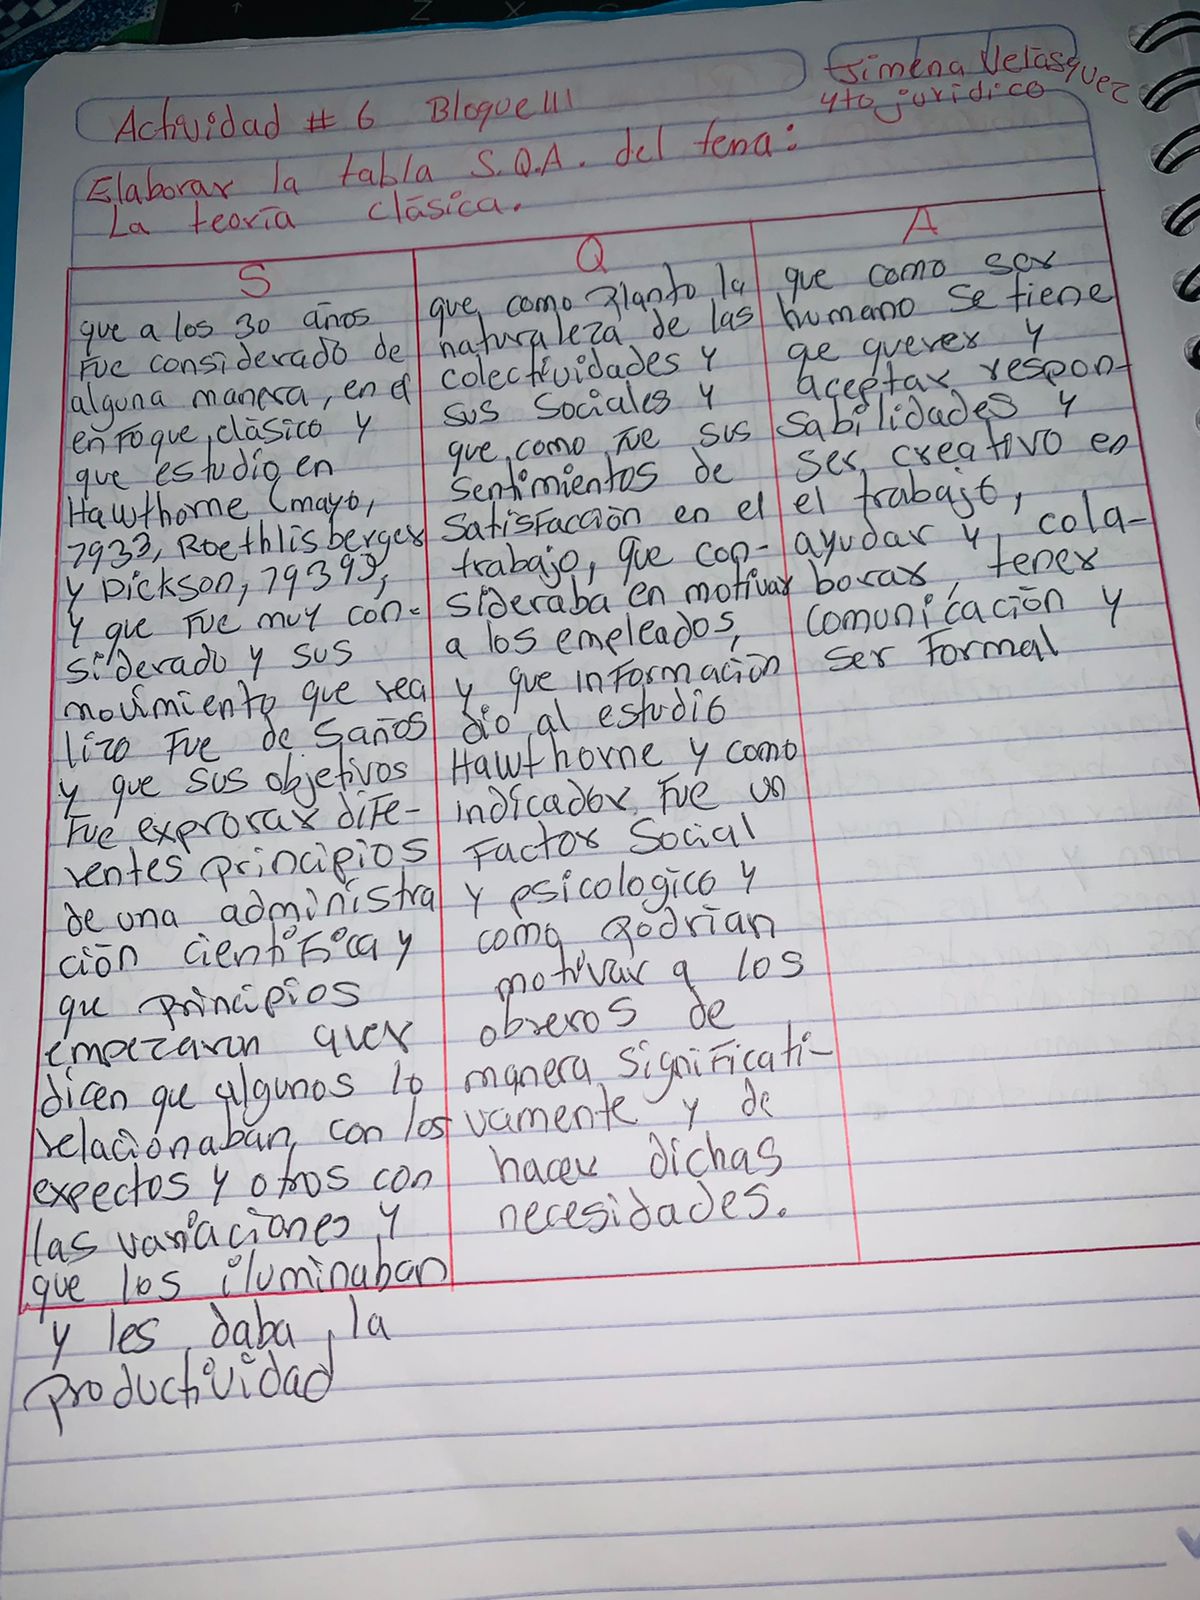 Actividad # 6 Bloque III
Jimena Velásquez
4to jurídico
Elaborar la tabla S.Q.A. del tema:
La teoría clásica.
S
que a los 30 años
fue considerado de
alguna manera, en el
enfoque clásico y
que estudio en
Hawthorne (mayo,
1933, Roethlisberger
y Dickson, 1939),
y que fue muy con-
siderado y sus
movimiento que rea
lizo fue de 5 años
y que sus objetivos
fue exprorar dife-
rentes principios
de una administra
ción cientifica y
que principios
empezaron quer
dicen que algunos lo
relacionaban con los
expectos y otros con
las variaciones y
que los iluminaban
y les daba la
productividad
Q
que como planto la
naturaleza de las
colectividades y
sus sociales y
que como fue sus
sentimientos de
satisfacción en el
trabajo, que con-
sideraba en motivar
a los empleados,
y que información
dio al estudio
Hawthorne y como
indicador fue un
factor social
y psicologico y
como podrian
motivar a los
obreros de
manera significati-
vamente y de
hacer dichas
necesidades.
A
que como ser
humano se tiene
qe querer y
aceptar respon-
sabilidades y
ser creativo en
el trabajo,
ayudar y cola-
borar, tener
comunicación y
ser formal